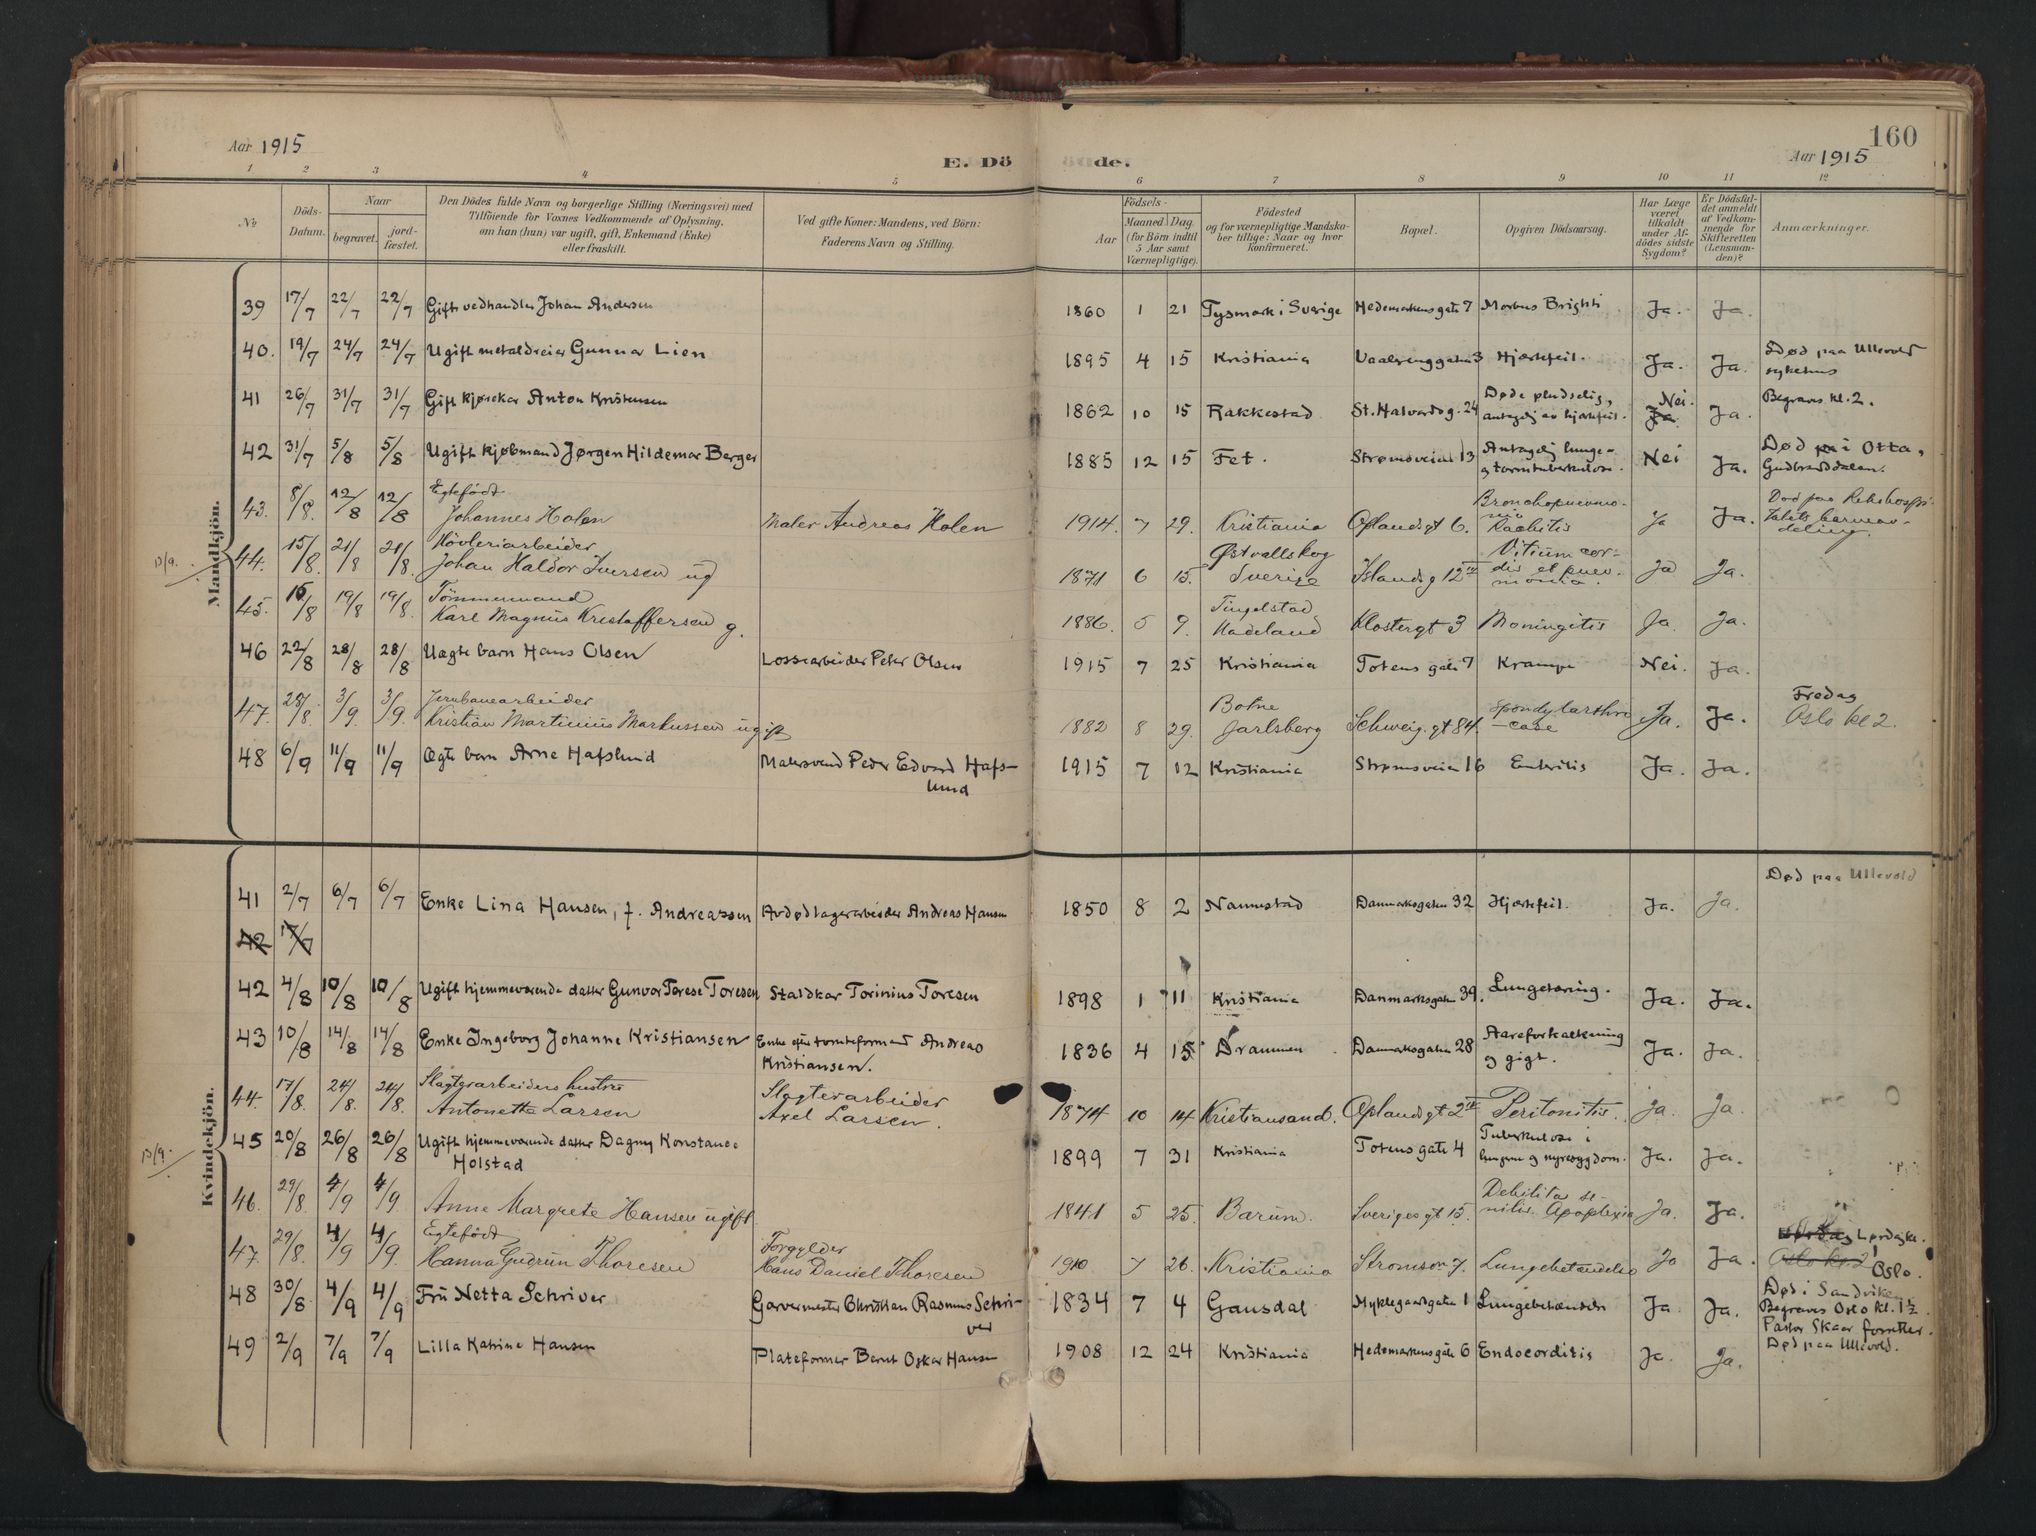 160
Aar 1915
E. Döde.
Aar 1915
1 2 3 4 5 6 7 8 9 10 11 12
No
Döds-Datum.
Naar
begravet.
jordfæstet.
Den Dödes fulde Navn og borgerlige Stilling (Næringsvei) med
Tilföiende for Voxnes Vedkommende af Oplysning,
om han (hun) var ugift, gift, Enkemand (Enke)
eller fraskilt.
Ved gifte Koner: Mandens, ved Börn:
Faderens Navn og Stilling.
Födsels-
Aar
Maaned Dag.
(for Börn indtil
5 Aar samt
Værnepligtige).
Födested
og for værnepligtige Mandskaber tillige: Naar og hvor
konfirmeret.
Bopæl.
Opgiven Dödsaarsag.
Har Læge
været
tilkaldt
under Afdödes sidste
Sygdom?
Er Dödsfaldet anmeldt
af Vedkommende for
Skifteretten
(Lensmanden)?
Anmærkninger.
Mandkjön.
39 17/7 22/7 22/7 Gift vedhandler Johan Andersen 1860 1 21 Tysmark i Sverige Hedemarkensgate 7 Morbus Brighti Ja. Ja.
40. 19/7 24/7 24/7 Ugift metaldreier Gunnar Lien 1895 4 15 Kristiania Vaalerenggaten 3 Hjærtefeil. Ja. Ja. Død paa Ullevold
sykehus
41 26/7 31/7 31/7 Gift kjørekar Anton Kristensen 1862 10 15 Rakkestad St. Halvardsg. 24 Døde pludselig,
antagelig av hjærtefeil. Nei. Ja. Ja. Begraves kl. 2.
42 31/7 5/8 5/8 Ugift kjøbmand Jørgen Hildemar Berger 1885 12 15 Fet. Strømsveien 13 Antagelig lunge-
og tarmtuberkulose. Nei Ja. Død i Otta,
Gudbrandsdalen.
43. 8/8. 12/8 12/8 Egtefödt
Johannes Holen Maler Andreas Holen 1914 7 29. Kristiania Oplandsgt 6. Bronchopneumonia
Rachitis Ja Ja. Död paa Rikshospitalets barneavdeling.
13/9. 44. 15/8. 21/8 21/8. Hövleriarbeider
Johan Haldor Iversen ug 1871 6 15. Østvallskog
Sverige Islandsg 12 IV Vitium cordis et pneumonia. Ja Ja.
45. 16/8 19/8 19/8. Tömmermand
Karl Magnus Kristoffersen g. 1886. 5 9. Tingelstad
Hadeland Klostergt 3 Meningitis Ja. Ja.
46 22/8 28/8 28/8 Uægte barn Hans Olsen Lossearbeider Peter Olsen 1915 7 25 Kristiania Totens gate 7 Krampe Nei. Ja.
47. 28/8. 3/9. 3/9. Jernbanearbeider
Kristian Martinius Markussen ugift 1882 8 29. Botne
Jarlsberg Schweig.gt 84. Ja. Ja. Fredag
Oslo kl 2.
48 6/9 11/9 11/9 Ægte barn Arne Hafslund Malersvend Peder Edvard Hafs-
lund 1915 7 12 Kristiania Strømsveien 16 Enteritis Ja. Ja.
Kvindekjön.
41 2/7 6/7 6/7 Enke Lina Hansen, f. Andreassen Avdød lagerarbeider Andreas Hansen 1850 8 2 Nannestad Danmarksgaten 32 Hjærtefeil. Ja. Ja. Død paa Ullevold
42 17/7
42 4/8 10/8 10/8 Ugift hjemmeværende datter Gunvor Terese Toresen Staldkar Torinius Toresen 1898 1 11 Kristiania Danmarksgaten 39. Lungetæring. Ja. Ja.
43 10/8 14/8 14/8 Enke Ingeborg Johanne Kristiansen Enke efter tomteformand Andreas
Kristiansen. 1836 4 15 Drammen Danmarksgaten 28 Aareforkalkning
og gigt. Ja. Ja.
44. 17/8. 24/8. 24/8. Slagterarbeiders hustru
Antonetta Larsen Slagterarbeider
Axel Larsen. 1874 10 14 Kristiansand. Oplandsgt 2 IV Peritonitis. Ja. Ja.
13/9. 45 20/8 26/8 26/8 Ugift hjemmeværende datter Dagny Konstance
Holstad 1899 7 31 Kristiania Totensgate 4 Tuberkulose i
lungerne og nyresygdom. Ja. Ja.
46. 29/8. 4/9 4/9. Anne Margrete Hansen ugift 1841 5 25. Bærum. Sverigesgt 15. Debilitas senilis. Apoplexia Ja. Ja.
47. 29/8. 4/9 4/9. Egtefödt
Hanna Gudrun Thoresen Forgylder
Hans Daniel Thoresen 1910 7 26. Kristiania Stromsv 7. Lungebetændelse Ja Ja. Lørdag kl. 1
Oslo kl 2 Oslo.
48 30/8 4/9 4/9 Fru Netta Schriver Garvermester Christian Rasmus Schri-
ver 1834 7 4 Gausdal Myklegaardsgaten 1 Lungebetændelse Ja. Ja. Død i Sandviken
Begraves Oslo kl. 1½.
Pastor Skaar forretter.
49 2/9 7/9 7/9 Lilla Katrine Hansen Plateformer Bernt Oskar Hansen 1908 12 24 Kristiania Hedemarkensgate 6 Endocarditis Ja. Ja. Død paa Ullevold.